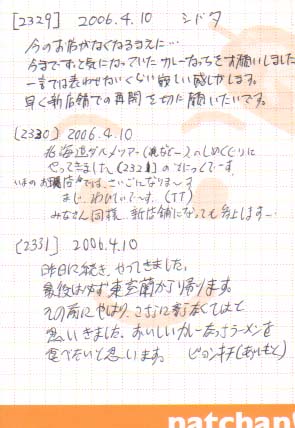 [2329] 2006.4.10 シドタ
今のお店がなくなるまえに…
今まですっと気になっていたカレーなっちをお願いしました
一言では表わせないくない寂しい感じがします。
早く新店舗での再開を切に願いたいです。
[2330] 2006.4.10
北海道グルメツアー のしめくくりに
やってきました [2321] の です
いまの お店 では、さいごになりま〜す
まじ、 です〜。(TT)
みなさん同様、新店舗になっても参上します〜
[2331] 2006.4.10
昨日に続き、やってきました。
最後は必ず東室蘭から帰ります。
その前にやはり、ここに寄らなくてはと
思いきました。おいしいカレーなっちラーメンを
食べたいと思います。
patchant